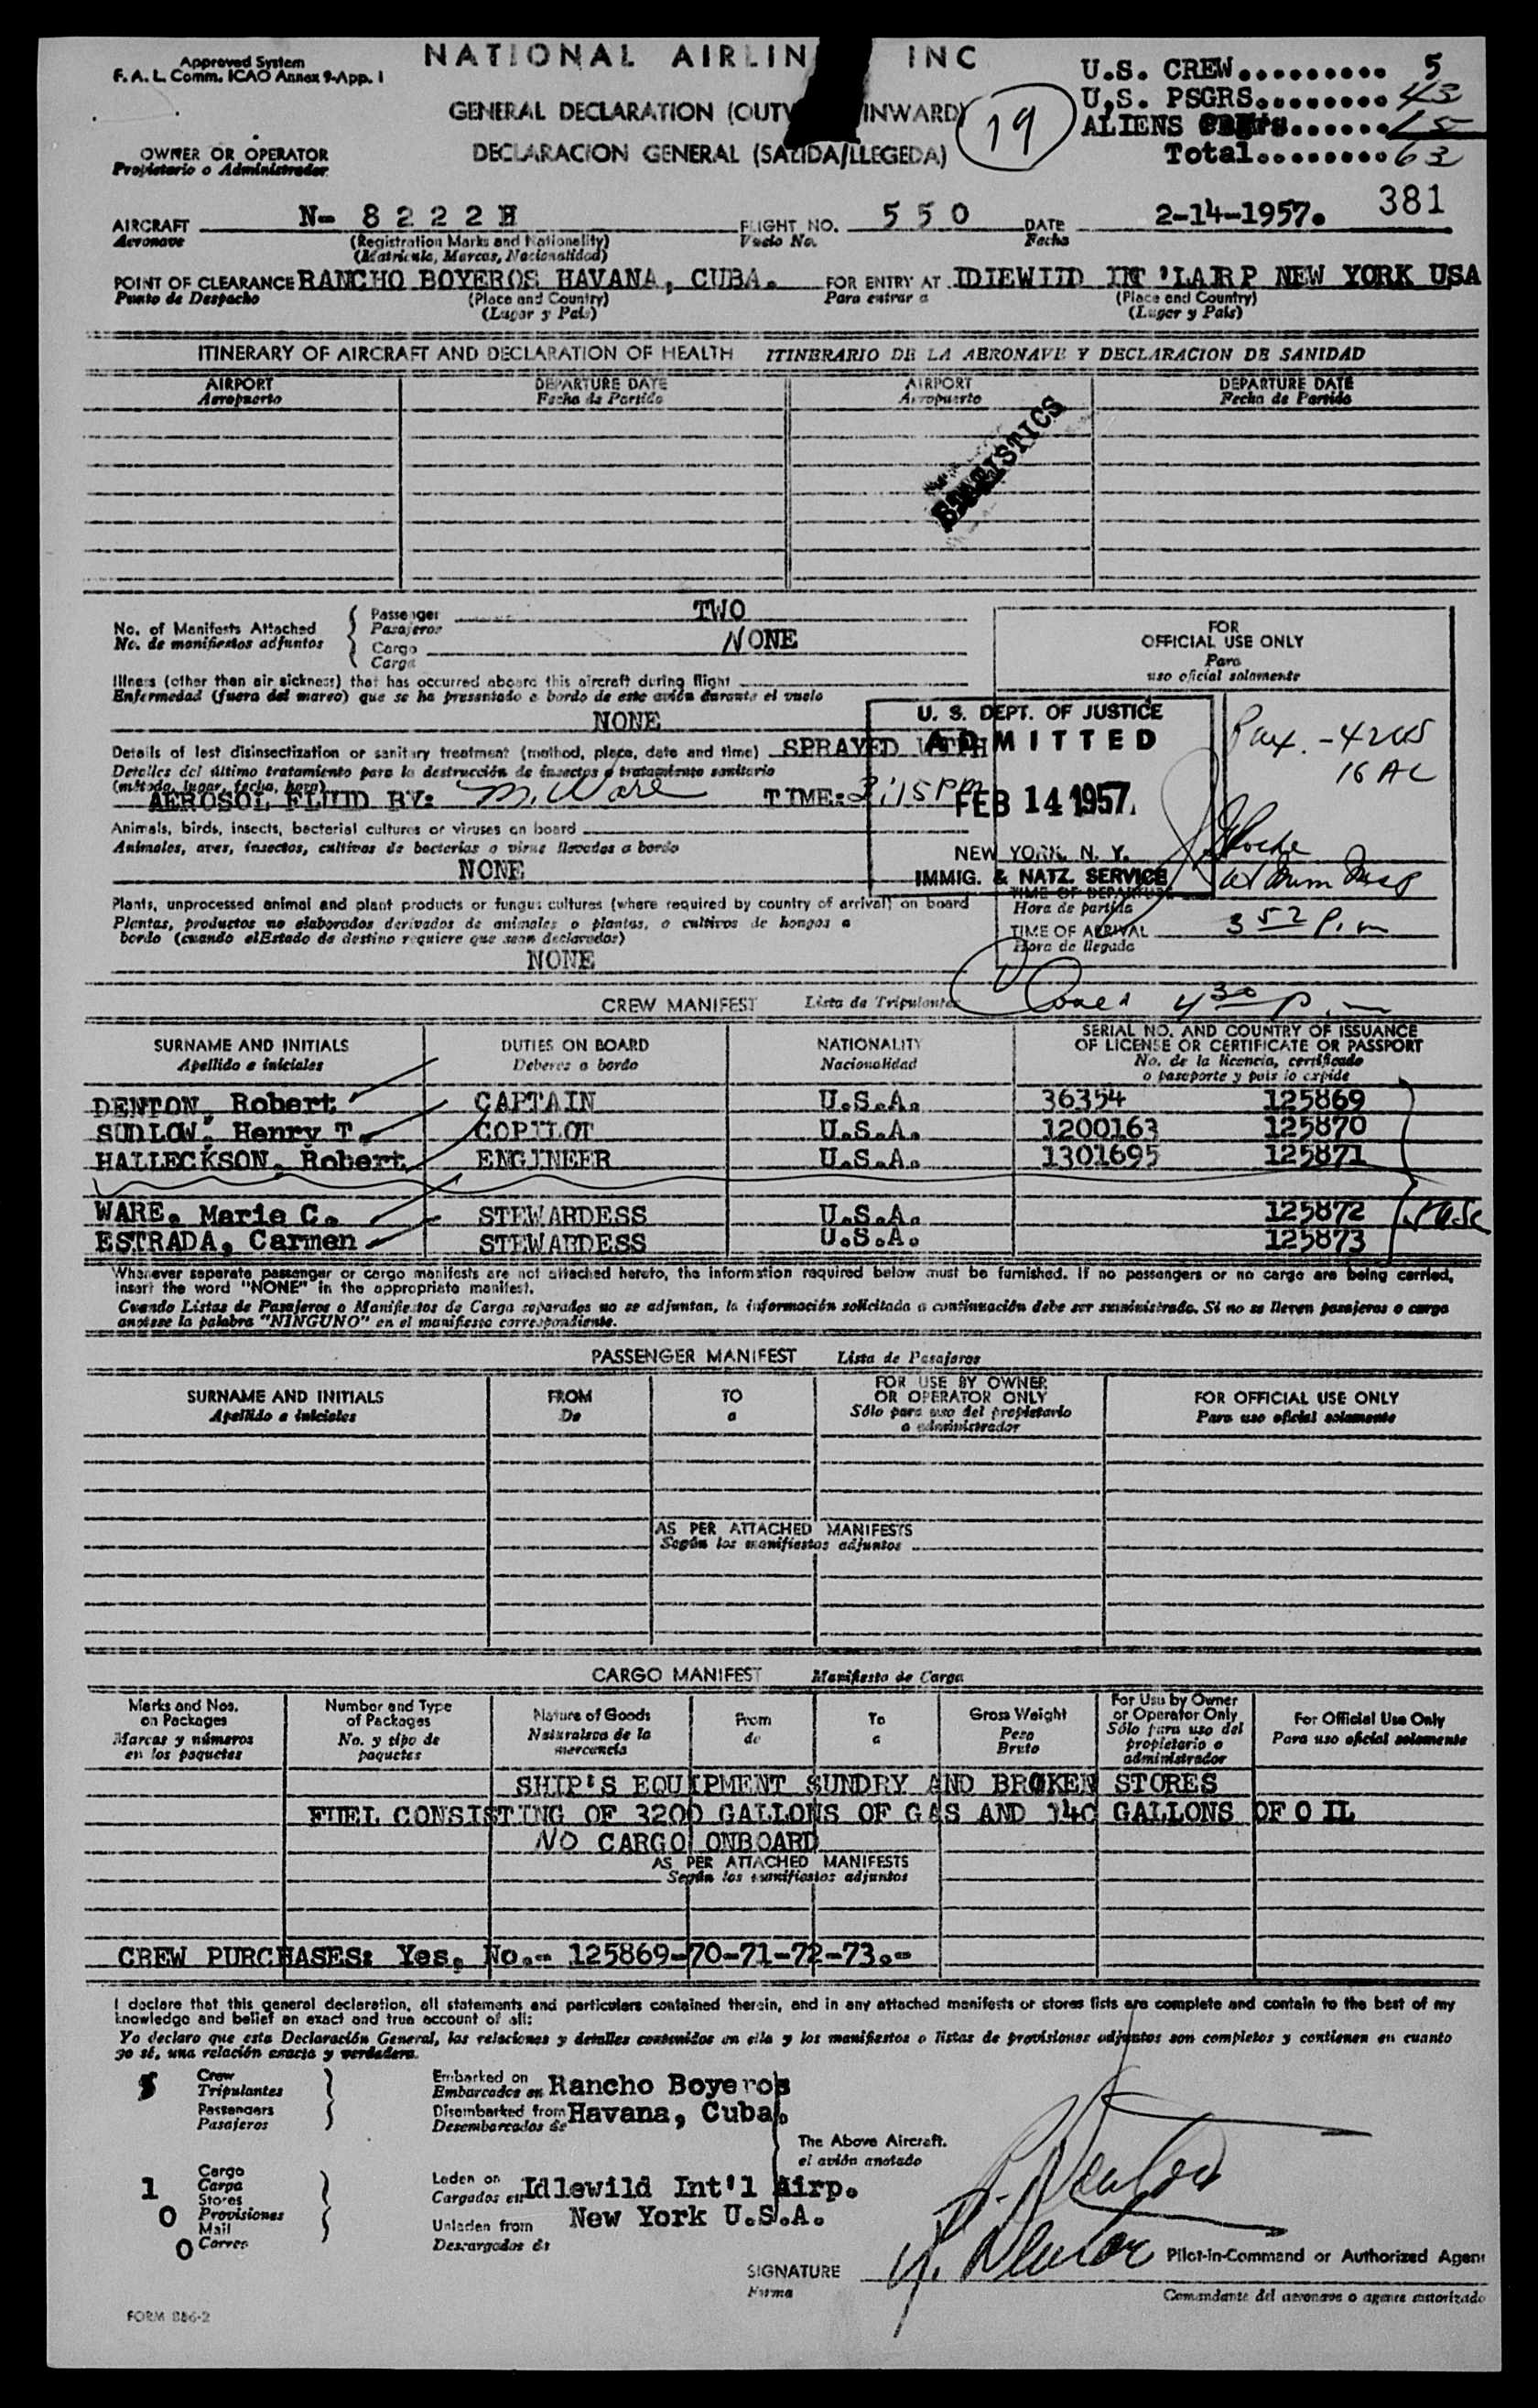 Approved System
F. A. L. Comm. ICAO Annex 9-App. 1
NATIONAL AIRLIN INC
GENERAL DECLARATION (OUTW INWARD)
DECLARACION GENERAL (SALIDA/LLEGEDA)
19
U.S. CREW......... 5
U.S. PSGRS........ 43
ALIENS ...... 15
Total........ 63
OWNER OR OPERATOR
Propietario o Administrador
381
AIRCRAFT N- 8 2 2 2 H FLIGHT NO. 5 5 0 DATE 2-14-1957.
Aeronave (Registration Marks and Nationality) Vuelo No. Fecha
(Matricula, Marcas, Nacionalidad)
POINT OF CLEARANCE RANCHO BOYEROS HAVANA, CUBA. FOR ENTRY AT IDIEWIID IN 'LAIRP NEW YORK USA
Punto de Despacho (Place and Country) Para entrar a (Place and Country)
(Lugar y Pais) (Lugar y Pais)
ITINERARY OF AIRCRAFT AND DECLARATION OF HEALTH ITINERARIO DE LA AERONAVE Y DECLARACION DE SANIDAD
AIRPORT DEPARTURE DATE AIRPORT DEPARTURE DATE
Aeropuerto Fecha de Partida Aeropuerto Fecha de Partida
STATISTICS
No. of Manifests Attached
No. de manifiestos adjuntos
Passenger TWO
Pasajeros
Cargo NONE
Carga
FOR
OFFICIAL USE ONLY
Para
uso oficial solamente
Illness (other than air sickness) that has occurred aboard this aircraft during flight
Enfermedad (fuera del mareo) que se ha presentado a bordo de este avión durante el vuelo
NONE
U. S. DEPT. OF JUSTICE
ADMITTED
FEB 14 1957
NEW YORK, N. Y.
IMMIG. & NATZ. SERVICE
Pax. - 42 US
16 AL
Details of last disinsectization or sanitary treatment (method, place, date and time) SPRAYED WITH
Detalles del último tratamiento para la destrucción de insectos o tratamiento sanitario
(método, lugar, fecha, hora)
AEROSOL FLUID BY: M. Ware TIME: 3:15 PM
Animals, birds, insects, bacterial cultures or viruses on board
Animales, aves, insectos, cultivos de bacterias o virus llevados a bordo
NONE
Plants, unprocessed animal and plant products or fungus cultures (where required by country of arrival) on board
Plantas, productos no elaborados derivados de animales o plantas, o cultivos de hongos a
bordo (cuando elEstado de destino requiere que sean declarados)
NONE
TIME OF DEPARTURE
Hora de partida
TIME OF ARRIVAL 3 52 P.m
Hora de llegada
4 30 p.m
CREW MANIFEST Lista de Tripulantes
SURNAME AND INITIALS DUTIES ON BOARD NATIONALITY SERIAL NO. AND COUNTRY OF ISSUANCE
OF LICENSE OR CERTIFICATE OR PASSPORT
Apellido e iniciales Deberes a bordo Nacionalidad No. de la licencia, certificado
o pasaporte y pais lo expide
DENTON, Robert CAPTAIN U.S.A. 36354 125869
SUDLOW, Henry T. COPILOT U.S.A. 1200163 125870
HALLECKSON, Robert ENGINEER U.S.A. 1301695 125871
WARE. Marie C. STEWARDESS U.S.A. 125872
ESTRADA, Carmen STEWARDESS U.S.A. 125873
Whenever separate passenger or cargo manifests are not attached hereto, the information required below must be furnished. If no passengers or no cargo are being carried,
insert the word "NONE" in the appropriate manifest.
Cuando Listas de Pasajeros o Manifiestos de Carga separados no se adjuntan, la información solicitada a continuación debe ser suministrada. Si no se lleven pasajeros o carga
anótese la palabra "NINGUNO" en el manifiesto correspondiente.
PASSENGER MANIFEST Lista de Pasajeros
SURNAME AND INITIALS FROM TO FOR USE BY OWNER
OR OPERATOR ONLY FOR OFFICIAL USE ONLY
Apellido e iniciales De a Sólo para uso del propietario
o administrador Para uso oficial solamente
AS PER ATTACHED MANIFESTS
Según los manifiestos adjuntos
CARGO MANIFEST Manifiesto de Carga
Marks and Nos.
on Packages
Marcas y números
en los paquetes
Number and Type
of Packages
No. y tipo de
paquetes
Nature of Goods
Naturaleza de la
mercancia
From
de
To
a
Gross Weight
Peso
Bruto
For Use by Owner
or Operator Only
Sólo para uso del
propietario o
administrador
For Official Use Only
Para uso oficial solamente
SHIP'S EQUIPMENT SUNDRY AND BROKEN STORES
FUEL CONSISTING OF 3200 GALLONS OF GAS AND 140 GALLONS OF O IL
NO CARGO ONBOARD
AS PER ATTACHED MANIFESTS
Según los manifiestos adjuntos
CREW PURCHASES: Yes, No.- 125869-70-71-72-73.-
I declare that this general declaration, all statements and particulars contained therein, and in any attached manifests or stores lists are complete and contain to the best of my
knowledge and belief an exact and true account of all:
Yo declaro que esta Declaración General, las relaciones y detalles contenidos en ella y los manifiestos o listas de provisiones adjuntos son completos y contienen en cuanto
yo sé, una relación exacta y verdadera.
5 Crew
Tripulantes
Passengers
Pasajeros
Embarked on Rancho Boyeros
Embarcados en
Disembarked from Havana, Cuba.
Desembarcados de
The Above Aircraft.
el avión anotado
1 Cargo
Carga
Stores
0 Provisiones
Mail
0 Correo
Laden on Idlewild Int'l Airp.
Cargados en
Unladen from New York U.S.A.
Descargados de
R. Denton
SIGNATURE R. Denton Pilot-in-Command or Authorized Agent
Firma Comandante del aeronave o agente autorizado
FORM 886-2